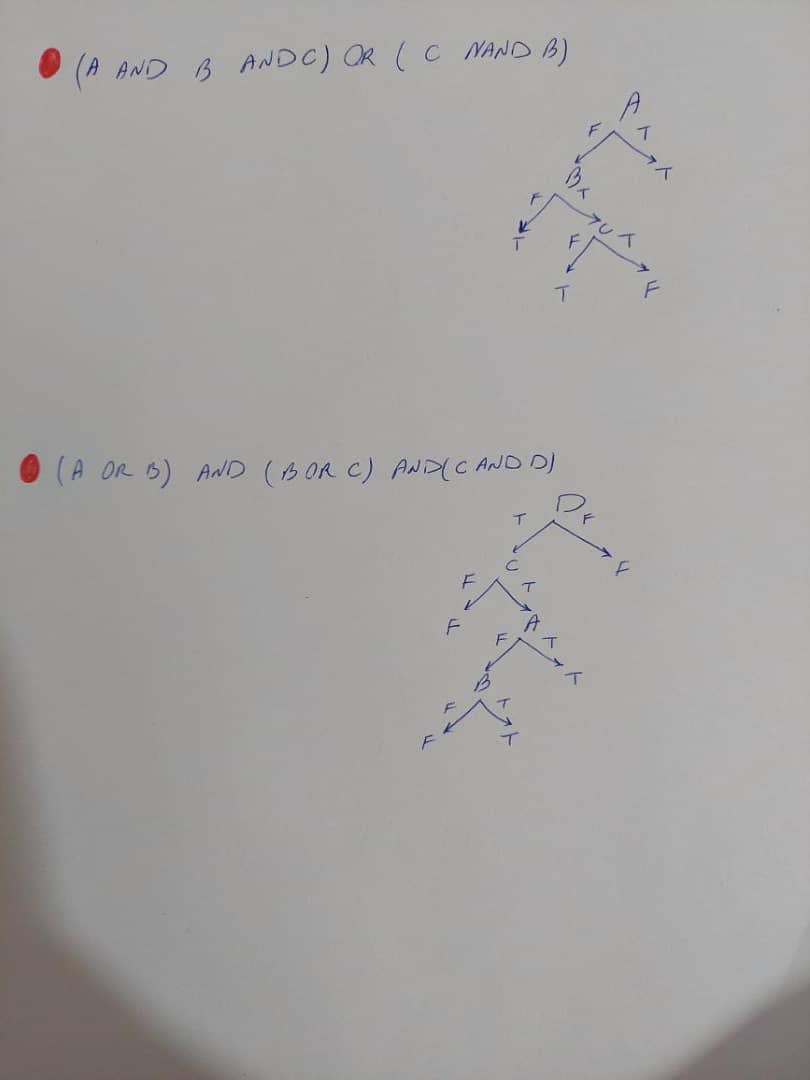 (A AND B AND C) OR ( C NAND B)
A
F T
B T
F T
T F C T
T F
(A OR B) AND (B OR C) AND (C AND D)
D
T F
C F
F T
F A
F T
B T
F T
F T